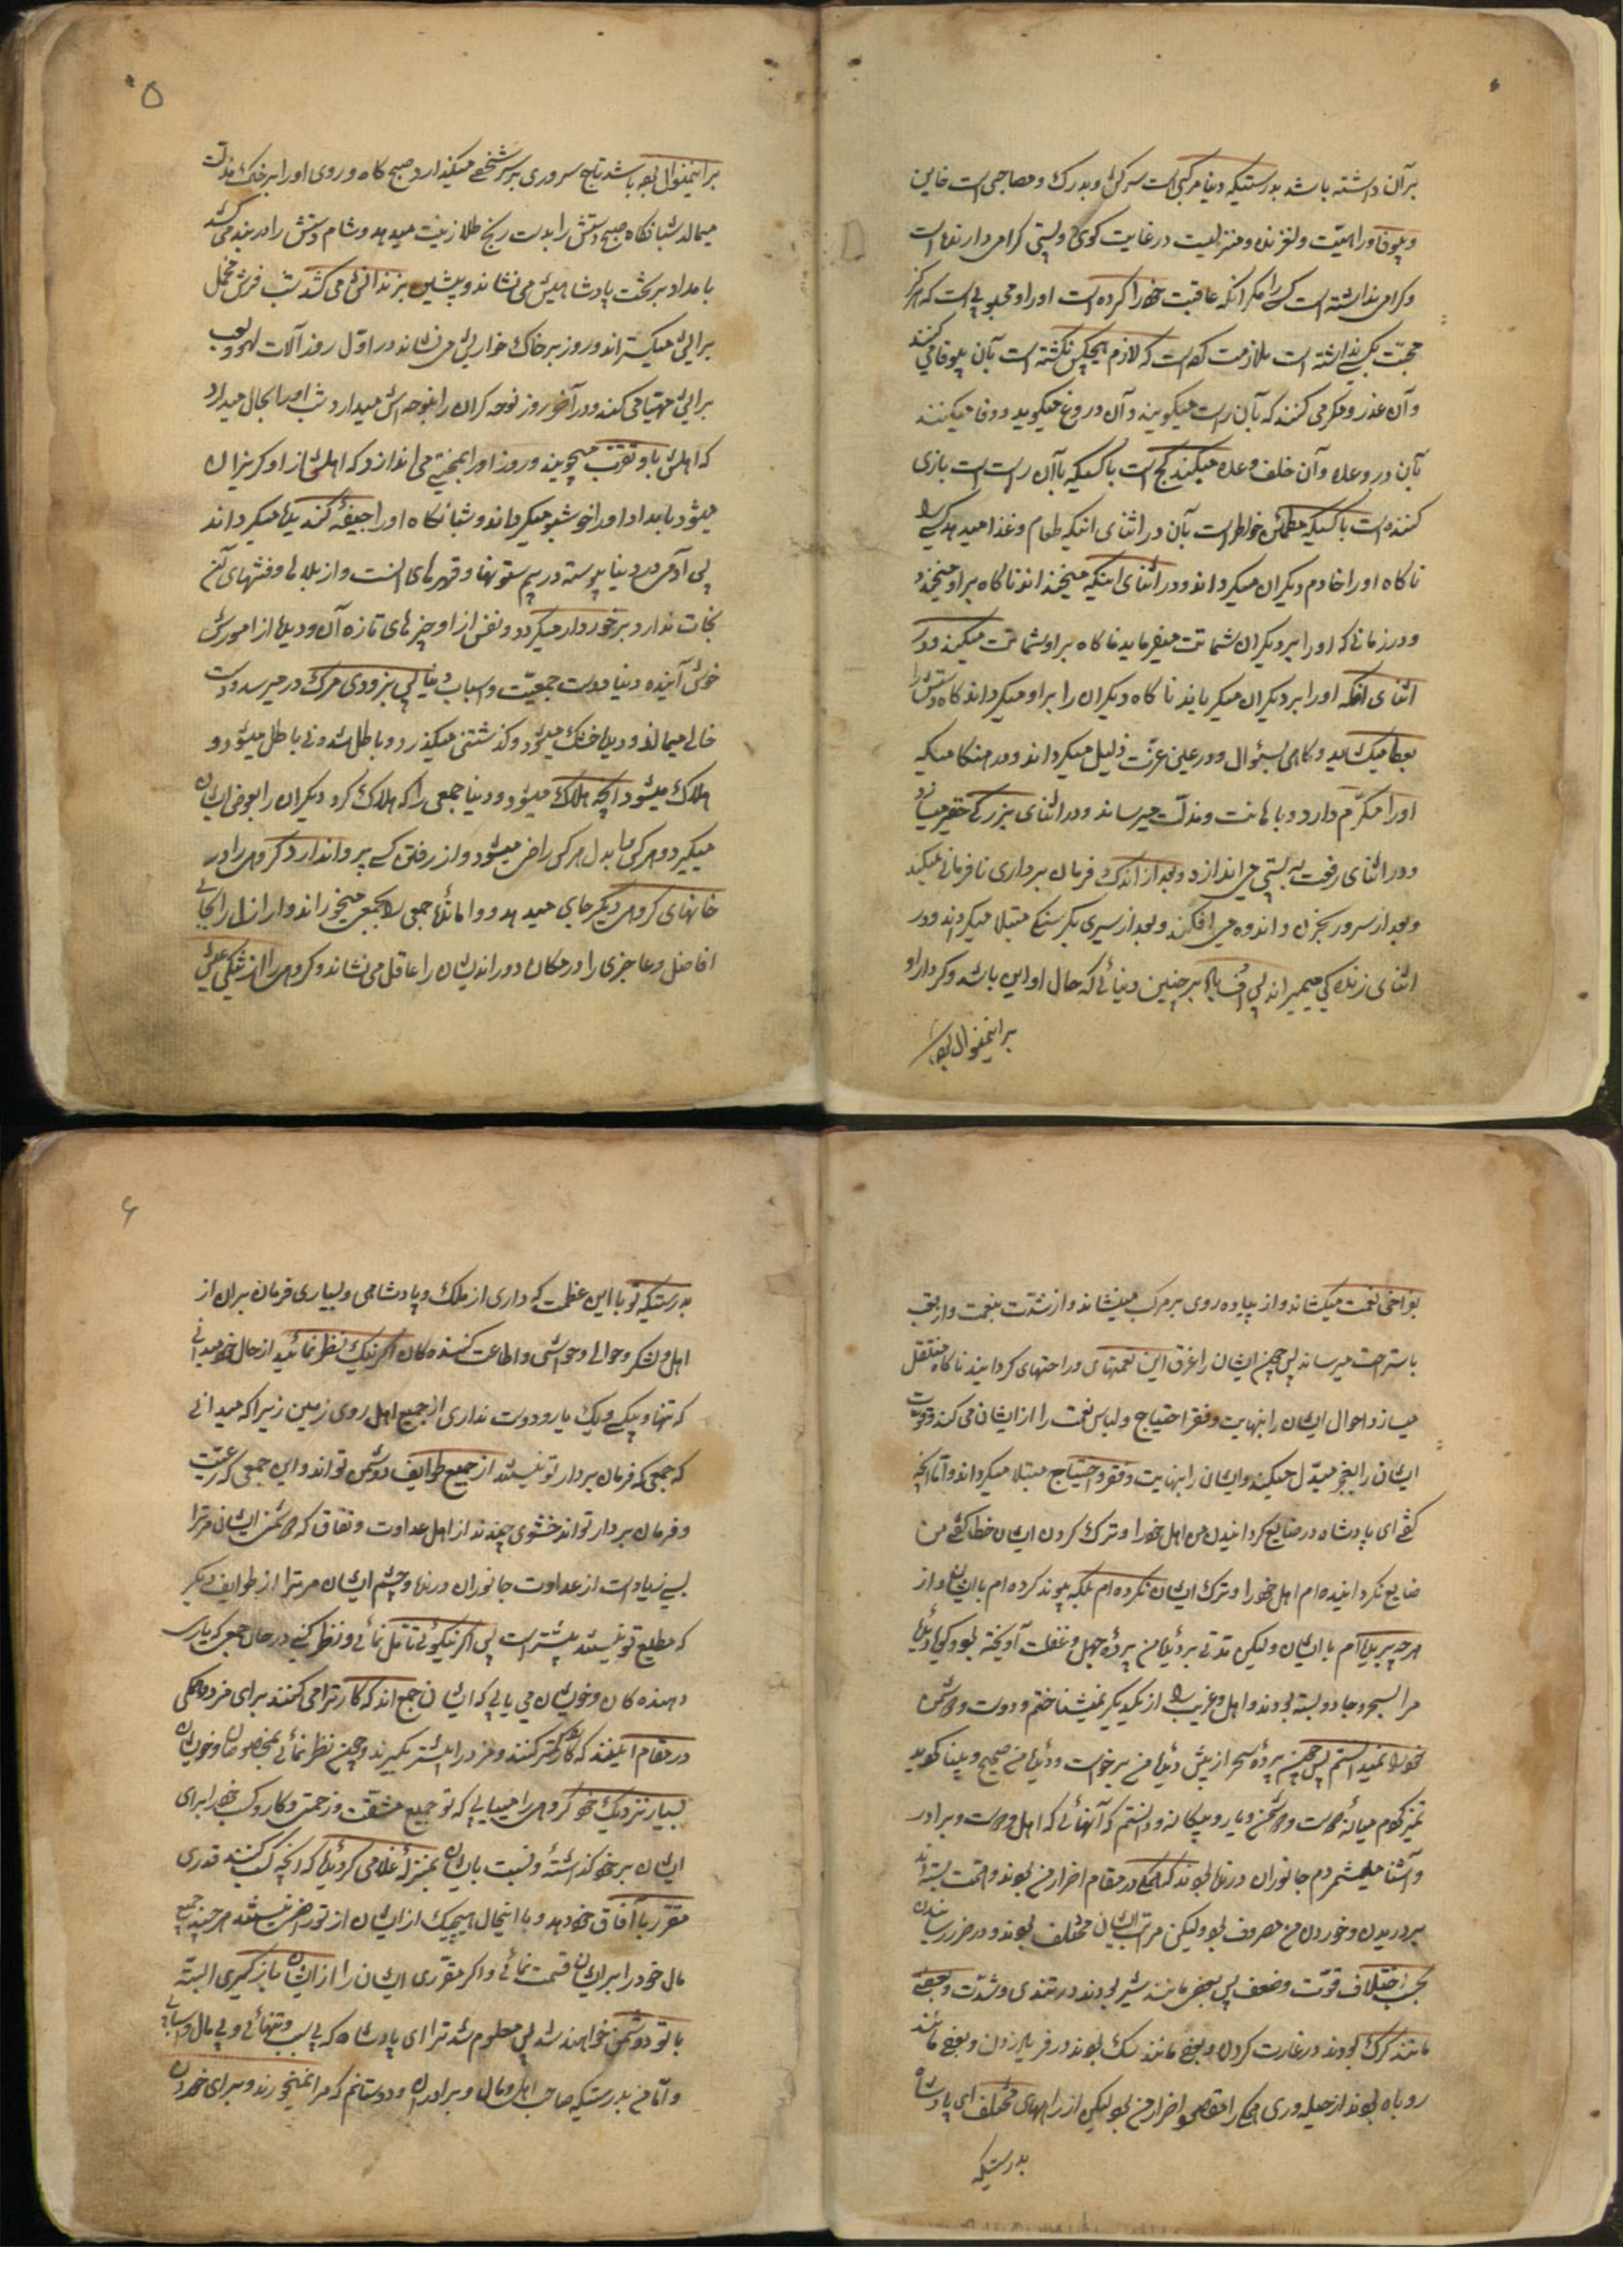 برآن داشته باشد بدرستیکه دنیا مرکبی است سرکش و بدرک و مصاحبی است خاین
و بیوفا و راهیست لغزنده و منزلیست در غایت کوی و پستی کرامی دارنده است
و کرامی نداشته است کسی را مکر انکه عاقبت خوار کرده است او را و محبوبی است که هرکز
محبت بکسی نداشته است ملازمت کرده است که لازم هیچکس نکشته است بآن بیوفا می کنند
و آن عذر و مکر می کنند که بآن راست میکویند و آن دروغ میکوید و وفا میکنند
بآن در وعده و آن خلف وعده میکند کج است با کسیکه با آن راست است بازی
کننده است با کسیکه مطمئن خاطر است بآن در اثنای اینکه طعام و غذا میدهد کسی را
ناکاه او را خادم دیکران میکرداند و در اثنای اینکه میخنداند ناکاه بر او میخندد
و در زمانی که او را بر دیکران شماتت میفرماید ناکاه بر او شماتت میکند و در
اثنای انکه او را بر دیکران میکریاند ناکاه دیکران را بر او میکرداند کاه دستش را
بعطا میکشاید و کاهی بسئوال و در عین عزت ذلیل میکرداند و در هنکامیکه
او را مکرّم دارد و باهانت و مذلت میرساند و در اثنای بزرکی حقیر میسازد
و در اثنای رفعت به پستی می اندازد و بعد از اندک فرمان برداری نافرمانی میکند
و بعد از سرور بحزن و اندوه می افکند و بعد از سیری بکرسنکی مبتلا میکرداند و در
اثنای زندکی میمیراند پس اُف باد بر چنین دنیائی که حال او این باشد و کردار او
براینمنوال بود
۵
براینمنوال بود باشد تاج سروری بر سر شخصی میکذارد صبح کاه و روی او را بر خاک مذلت
میمالد شبانکاه صبح دستش را بدست رنج طلا زینت میدهد و شام دستش را در بند می کشد
بامداد بر تخت پادشاهیش می نشاند و پیشین بزندانش می کشد شب فرش مخمل
برایش میکستراند و روز بر خاک خواریش می نشاند در اوّل روز آلات لهو و لعب
برایش مهیّا می کند و در آخر روز نوحه کران را بنوحه اش میدارد شب او را بحال میدارد
که اهلش باو تقرّب میجویند و روز او را بمحنتی می اندازد که اهلش از او کریزان
میشود بامداد او را خوشبو میکرداند و شبانکاه او را جیفۀ کندیده میکرداند
پس آدمی در دنیا پیوسته در بیم سطوتها و قهرهای انست و از بلاها و فتنهای آن
نجات ندارد برخوردار میکردد و نفس از او چیزهای تازه آن و دیده از امورش
خوش آینده دنیا دست جمعیّت و اسباب دنیا پس بزودی مرک در میرسد و دست
خالی میماند و دیده خشک میشود و کذشتنی میکذرد و باطل شدنی باطل میشود و
هلاک میشود آنچه هلاک میشود و دنیا جمعی را که هلاک کرد دیکران را بعوض ایشان
میکیرد و هر کس را بدل هر کس راضی میشود و از رفتن کسی پروا ندارد کروهی را در
خانهای کروهی دیکر جای میدهد و وامانده جمعی را بجمعی میخوراند و اراذل را بجای
افاضل و عاجزی را در مکان دوراندیشان را عاقل می نشاند و کروهی را از تنکی عیش
بفراخی نعمت میکشاند و از پیاده روی بر مرکب مینشاند و از شدّت بنعمت و از تعب
باستراحت میرساند پس چون ایشان را غرق این نعمتهای و راحتهای کردانید ناکاه منقلب
میسازد احوال ایشان را بنهایت فقر و احتیاج و لباس نعمت را از ایشان می کند و قوت
ایشان را بعجز مبدّل میکند و ایشان را بنهایت فقر و احتیاج مبتلا میکرداند و امّا آنچه
کفتی ای پادشاه در ضایع کردانیدن من اهل خود را و ترک کردن ایشان خطا کفتی من
ضایع نکردانیده ام اهل خود را و ترک ایشان نکرده ام بلکه پیوند کرده ام با ایشان و از
هر چه بریده ام با ایشان ولیکن مدّتی بر دیدۀ من پردۀ جهل و غفلت آویخته بود و کویا دیدۀ
مرا بسحر و جادو بسته بودند و اهل و غریب را از یکدیکر نمیشناختم و دوست و دشمن
خود را نمیدانستم پس چون پردۀ سحر از پیش دیدۀ من برخواست و دیدۀ من صحیح و بینا کردید
تمیز کردم میانۀ دوست و دشمن و یار و بیکانه و دانستم که آنهائی که اهل و دوست و برادر
و آشنا میشمردم جانوران درنده بودند که همکی در مقام اضرار من بودند و همّت بسته اند
بر دریدن و خوردن من مصروف بود ولیکن مراتب ایشان مختلف بودند و در ضرر رسانیدن
بحسب اختلاف قوّت و ضعف پس بعضی مانند شیر بودند در تندی و شدّت و بعضی
مانند کرک بودند در غارت کردن و بعضی مانند سک بودند در فریاد زدن و بعضی مانند
روباه بودند از حیله وری همکی را مقصود اضرار من بود لیکن از راههای مختلف ای پادشاه
بدرستیکه
۶
بدرستیکه تو با این عظمت که داری از ملک و پادشاهی و بسیاری فرمان بران از
اهل و لشکر و حوالی و حواشی و اطاعت کننده کان اکر نیک نظر نمائید از حال خود میدانی
که تنها و بیکسی و یک یار و دوست نداری از جمیع اهل روی زمین زیرا که میدانی
که جمعی که فرمان بردار تو نیستند از جمیع طوایف دشمن تو اند و این جمعی که رعیّت
و فرمان بردار تو اند حشوی چندند از اهل عداوت و نفاق که دشمنی ایشان مر ترا
بسی زیاد است از عداوت جانوران درنده و خشم ایشان مر ترا از طوایف دیکر
که مطیع تو نیستند بیشتر است پس اکر نیکوئی تامّل نمائی و نظر کنی در حال جمعی که یاری
دهنده کان و خویشان می یابی که ایشان جمع اند که کار ترا می کنند برای مزد و همکی
در مقام اینند که کار کمتر کنند و مزد را بیشتر بکیرند و چون نظر نمائی بمخصوصان و خویشان
بسیار نزدیک خود کروهی را مییابی که تو جمیع مشقّت و زحمتی و کار و کسب خود را برای
ایشان بر خود کذاشته و نسبت بایشان بمنزلۀ غلامی کردیده که آنچه کسب کند قدری
مقرّر باآقای خود دهد و با اینحال هیچیک از ایشان از تو راضی نیستند هر چند جمیع
مال خود را بر ایشان قسمت نمائی و اکر مقرّری ایشان را از ایشان بازکیری البتّه
با تو دشمن خواهند شد پس معلوم شد ترا ای پادشاه که بی کسی و تنهائی و بی مال و اسبابی
و امّا من بدرستیکه صاحب اهل و مال و برادران و دوستانم که مرا نمیخورند و برای خوردن